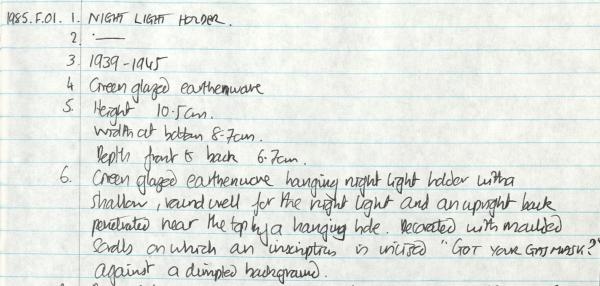 1985.F.01. 1. NIGHT LIGHT HOLDER.
2. —
3. 1939-1945
4 Green glazed earthenware
5. Height 10.5cm.
Width at bottom 8.7cm.
Depth front to back 6.7cm.
6. Green glazed earthenware hanging night light holder with a
shallow, round well for the night light and an upright back
penetrated near the top by a hanging hole. Decorated with moulded
scrolls on which an inscription is incised "GOT YOUR GAS MASK?"
against a dimpled background.